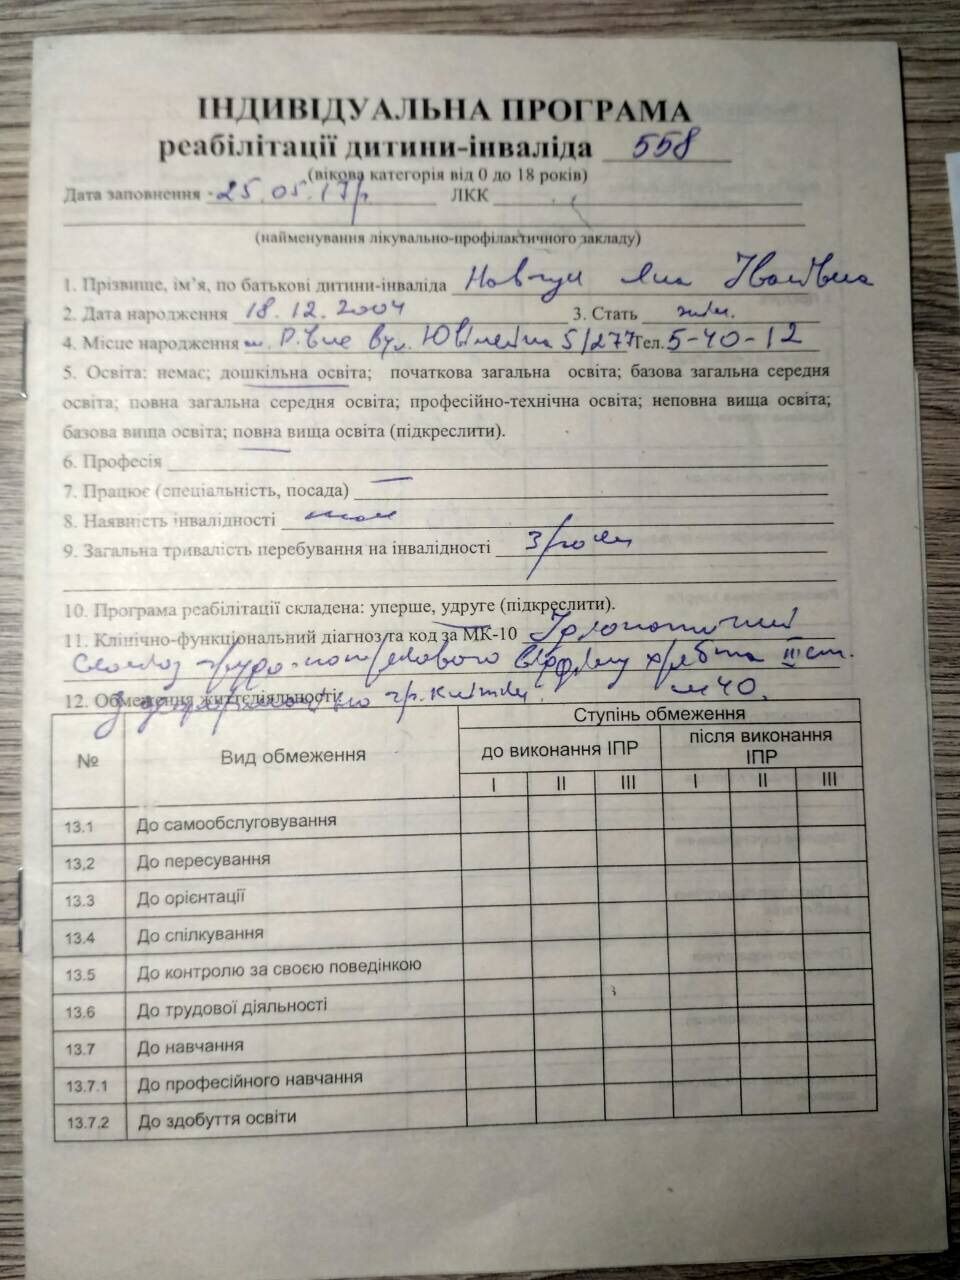 ІНДИВІДУАЛЬНА ПРОГРАМА
реабілітації дитини-інваліда 558
(вікова категорія від 0 до 18 років)
Дата заповнення 25.05.17р ЛКК
(найменування лікувально-профілактичного закладу)
1. Прізвище, ім’я, по батькові дитини-інваліда Яна Іванівна
2. Дата народження 18.12.2004 3. Стать жін.
4. Місце народження м. Рівне вул. Ювілейна 5/277 Тел. 5-40-12
5. Освіта: немає; дошкільна освіта; початкова загальна освіта; базова загальна середня
освіта; повна загальна середня освіта; професійно-технічна освіта; неповна вища освіта;
базова вища освіта; повна вища освіта (підкреслити).
6. Професія
7. Працює (спеціальність, посада) —
8. Наявність інвалідності
9. Загальна тривалість перебування на інвалідності 3 роки
10. Програма реабілітації складена: уперше, удруге (підкреслити).
11. Клінічно-функціональний діагноз та код за МК-10 Ідіопатичний
сколіоз грудо-поперекового відділу хребта III ст.
12. Обмеження життєдіяльності: з деформацією гр. клітки. М40.
№ Вид обмеження Ступінь обмеження
до виконання ІПР після виконання ІПР
I II III I II III
13.1 До самообслуговування
13,2 До пересування
13.3 До орієнтації
13.4 До спілкування
13.5 До контролю за своєю поведінкою
13.6 До трудової діяльності
13.7 До навчання
13.7.1 До професійного навчання
13.7.2 До здобуття освіти